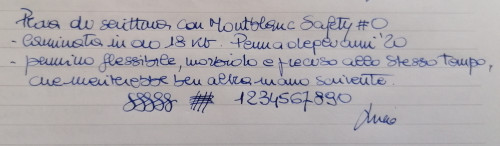 Prova di scrittura con Montblanc Safety #0
- laminata in oro 18 KR. Penna depoca anni '20
- pennino flessibile, morbido e preciso allo stesso tempo,
che meriterebbe ben altra mano scrivente.
1234567890